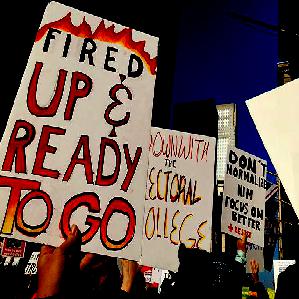 FIRED
UP &
READY
TO GO
DOWN WITH
THE
ECTORAL
OLLEGE
DON'T
NORMALIZE
HIM
FOCUS ON
BETTER